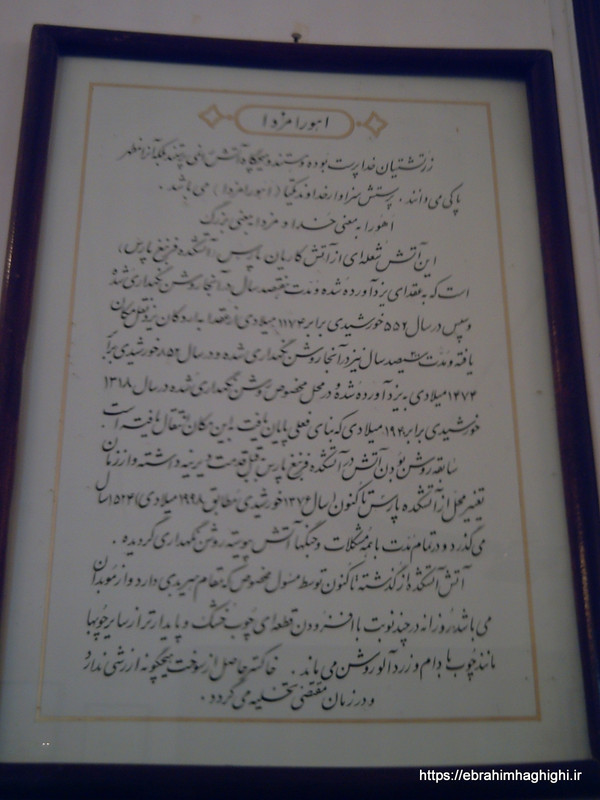 اهورا مزدا
زرتشتیان خدا پرست بوده و هستند و هیچگاه آتش را نمی پرستند بلکه آنرا مظهر
پاکی می دانند. پرستش سزاوار خداوند یکتا (اهورامزدا) می باشد.
اهورا به معنی خدا و مزدا بمعنی بزرگ
این آتش شعله ای از آتش کاریان پارس (آتشکده فرنبغ پارس)
است که به عقدای یزد آورده شده و مدت هفتصد سال در آنجا روشن نگهداری شد
و سپس در سال ۵۵۲ خورشیدی برابر ۱۱۷۴ میلادی از عقدا به اردکان یزد نقل مکان
یافته و مدت سیصد سال نیز در آنجا روشن نگهداری شده و در سال ۸۵۲ خورشیدی برابر
۱۴۷۴ میلادی به یزد آورده شده و در محل مخصوص روشن نگهداری شده در سال ۱۳۱۸
خورشیدی برابر ۱۹۴۰ میلادی که بنای فعلی پایان یافت باین مکان انتقال یافته است
سابقه روشن بودن آتش در آتشکده فرنبغ پارس قدمت دیرینه داشته و از زمان
تغییر محل از آتشکده پارس تا کنون (سال ۱۳۷۶ خورشیدی مطابق ۱۹۹۸ میلادی) ۱۵۲۴ سال
می گذرد و در تمام مدت با همه مشکلات و جنگها آتش پیوسته روشن نگهداری گردیده.
آتش آتشکده از گذشته تا کنون توسط مسئول مخصوص که مقام هیربدی دارد و از موبدان
می باشد روزانه در چند نوبت با افزودن قطعه ای چوب خشک و پایدارتر از سایر چوبها
مانند چوب بادام و زردآلو روشن می ماند. خاکستر حاصل از سوخت هیچگونه ارزشی ندارد
و در زمان مقتضی تخلیه می گردد.
https://ebrahimhaghighi.ir